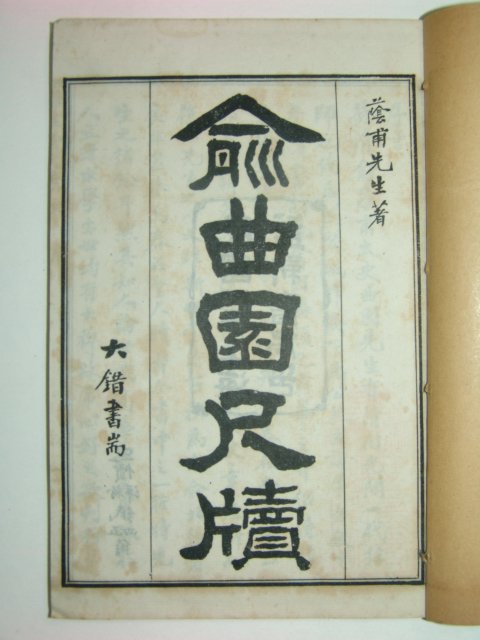 蔭甫先生著
俞曲園尺牘
大錯書耑